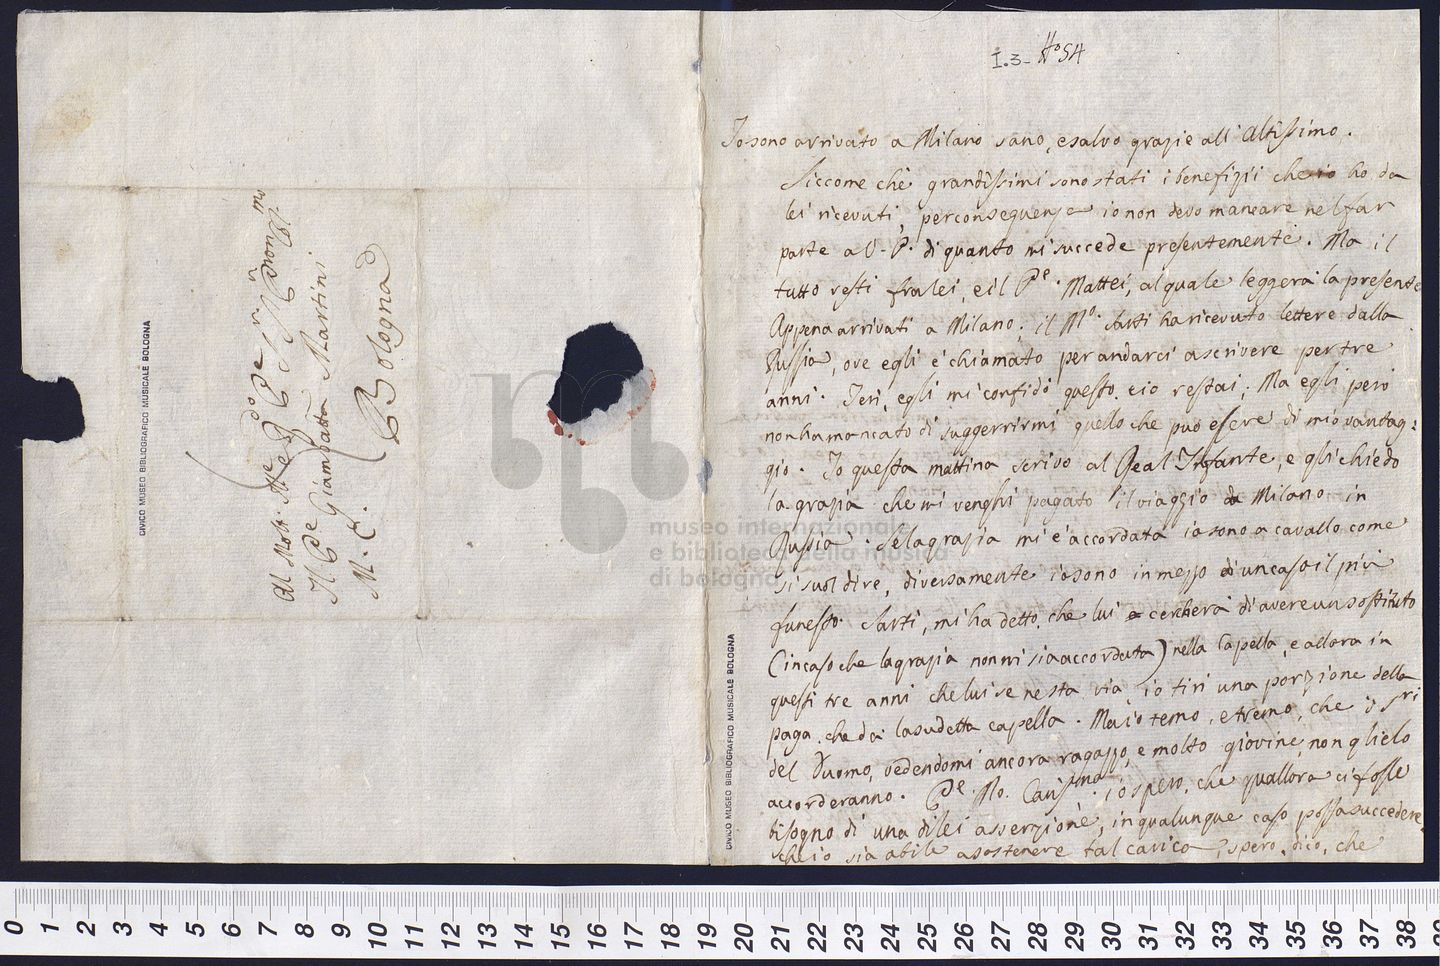 I.3- Ho 54
Io sono arrivato a Milano sano, e salvo grazie all'Altissimo.
Siccome chè grandissimi sono stati i benefizii che io ho da
lei ricevuti, per conseguenza io non devo mancare nel far
parte a V. P. di quanto mi succede presentemente. Ma il
tutto resti fra lei, e il Pre. Mattei, al quale leggerà la presente
Appena arrivati a Milano; il Mo. Sarti ha ricevuto lettere dalla
Russia, ove egli è chiamato per andarci a scrivere per tre
anni. Ieri, egli mi confidò questo, e io restai; Ma egli però
non ha mancato di suggerirmi quello che può essere di mio vantag:
gio. Io questa mattina scrivo al Real Infante, e gli chiedo
la grazia che mi venghi pagato il viaggio da Milano in
Russia. Se la grazia mi è accordata io sono a cavallo come
si suol dire, diversamente io sono in mezzo di un caso il più
funesto. Sarti, mi ha detto, che lui cercherà di avere un sostituto
(in caso che la grazia non mi sia accordata) nella Capella, e allora in
questi tre anni che lui se ne sta via, io tiri una porzione della
paga che dà la sudetta capella. Ma io temo, e tremo, che i Sri
del Duomo, vedendomi ancora ragazzo, e molto giovine, non glielo
accorderanno. Pre. Mo. Carismo. io spero, che quallora ci fosse
bisogno di una di lei asserzione, in qualunque caso possa succedere
che io sia abile a sostenere tal carico, spero, dico, che
Al Molto Rdo Pre
Il Pre Giambatta Martini
M. C.
Bologna
CIVICO MUSEO BIBLIOGRAFICO MUSICALE BOLOGNA
CIVICO MUSEO BIBLIOGRAFICO MUSICALE BOLOGNA
museo internazionale
e biblioteca della musica
di bologna
0 1 2 3 4 5 6 7 8 9 10 11 12 13 14 15 16 17 18 19 20 21 22 23 24 25 26 27 28 29 30 31 32 33 34 35 36 37 38